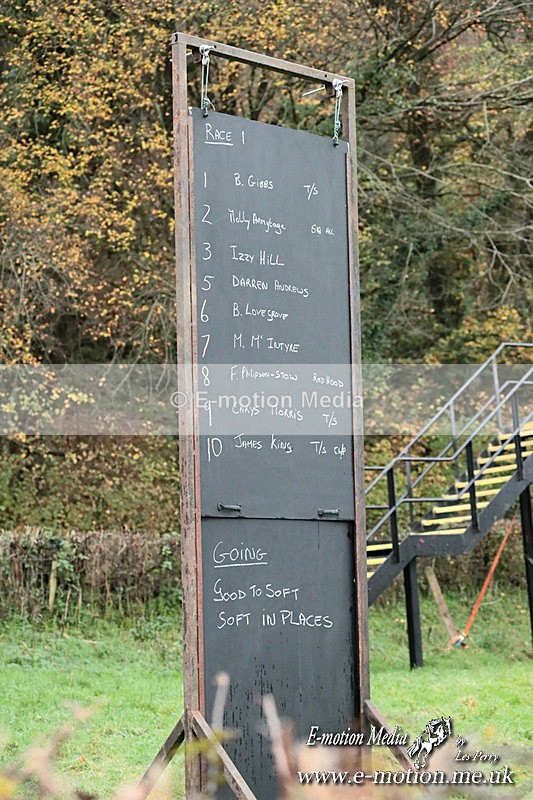 RACE 1
1 B. GIBBS T/S
2 MOLLY ARMYTAGE
3 IZZY HILL
5 DARREN ANDREWS
6 B. LOVEGROVE
7 M. McINTYRE
8 F. PHILIPSON-STOW RED HOOD
© E-motion Media
9 CHRYS MORRIS T/S
10 JAMES KING T/S
GOING
GOOD TO SOFT
SOFT IN PLACES
E-motion Media
by
Les Perry
www.e-motion.me.uk